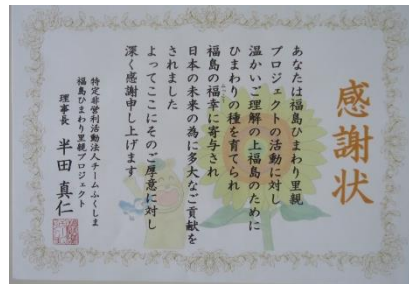 感謝状
あなたは福島ひまわり里親
プロジェクトの活動に対し
温かいご理解の上福島のために
ひまわりの種を育てられ
福島の福幸に寄与され
日本の未来の為に多大なご貢献を
されました
よってここにそのご厚意に対し
深く感謝申し上げます
特定非営利活動法人チームふくしま
福島ひまわり里親プロジェクト
理事長 半田 真仁